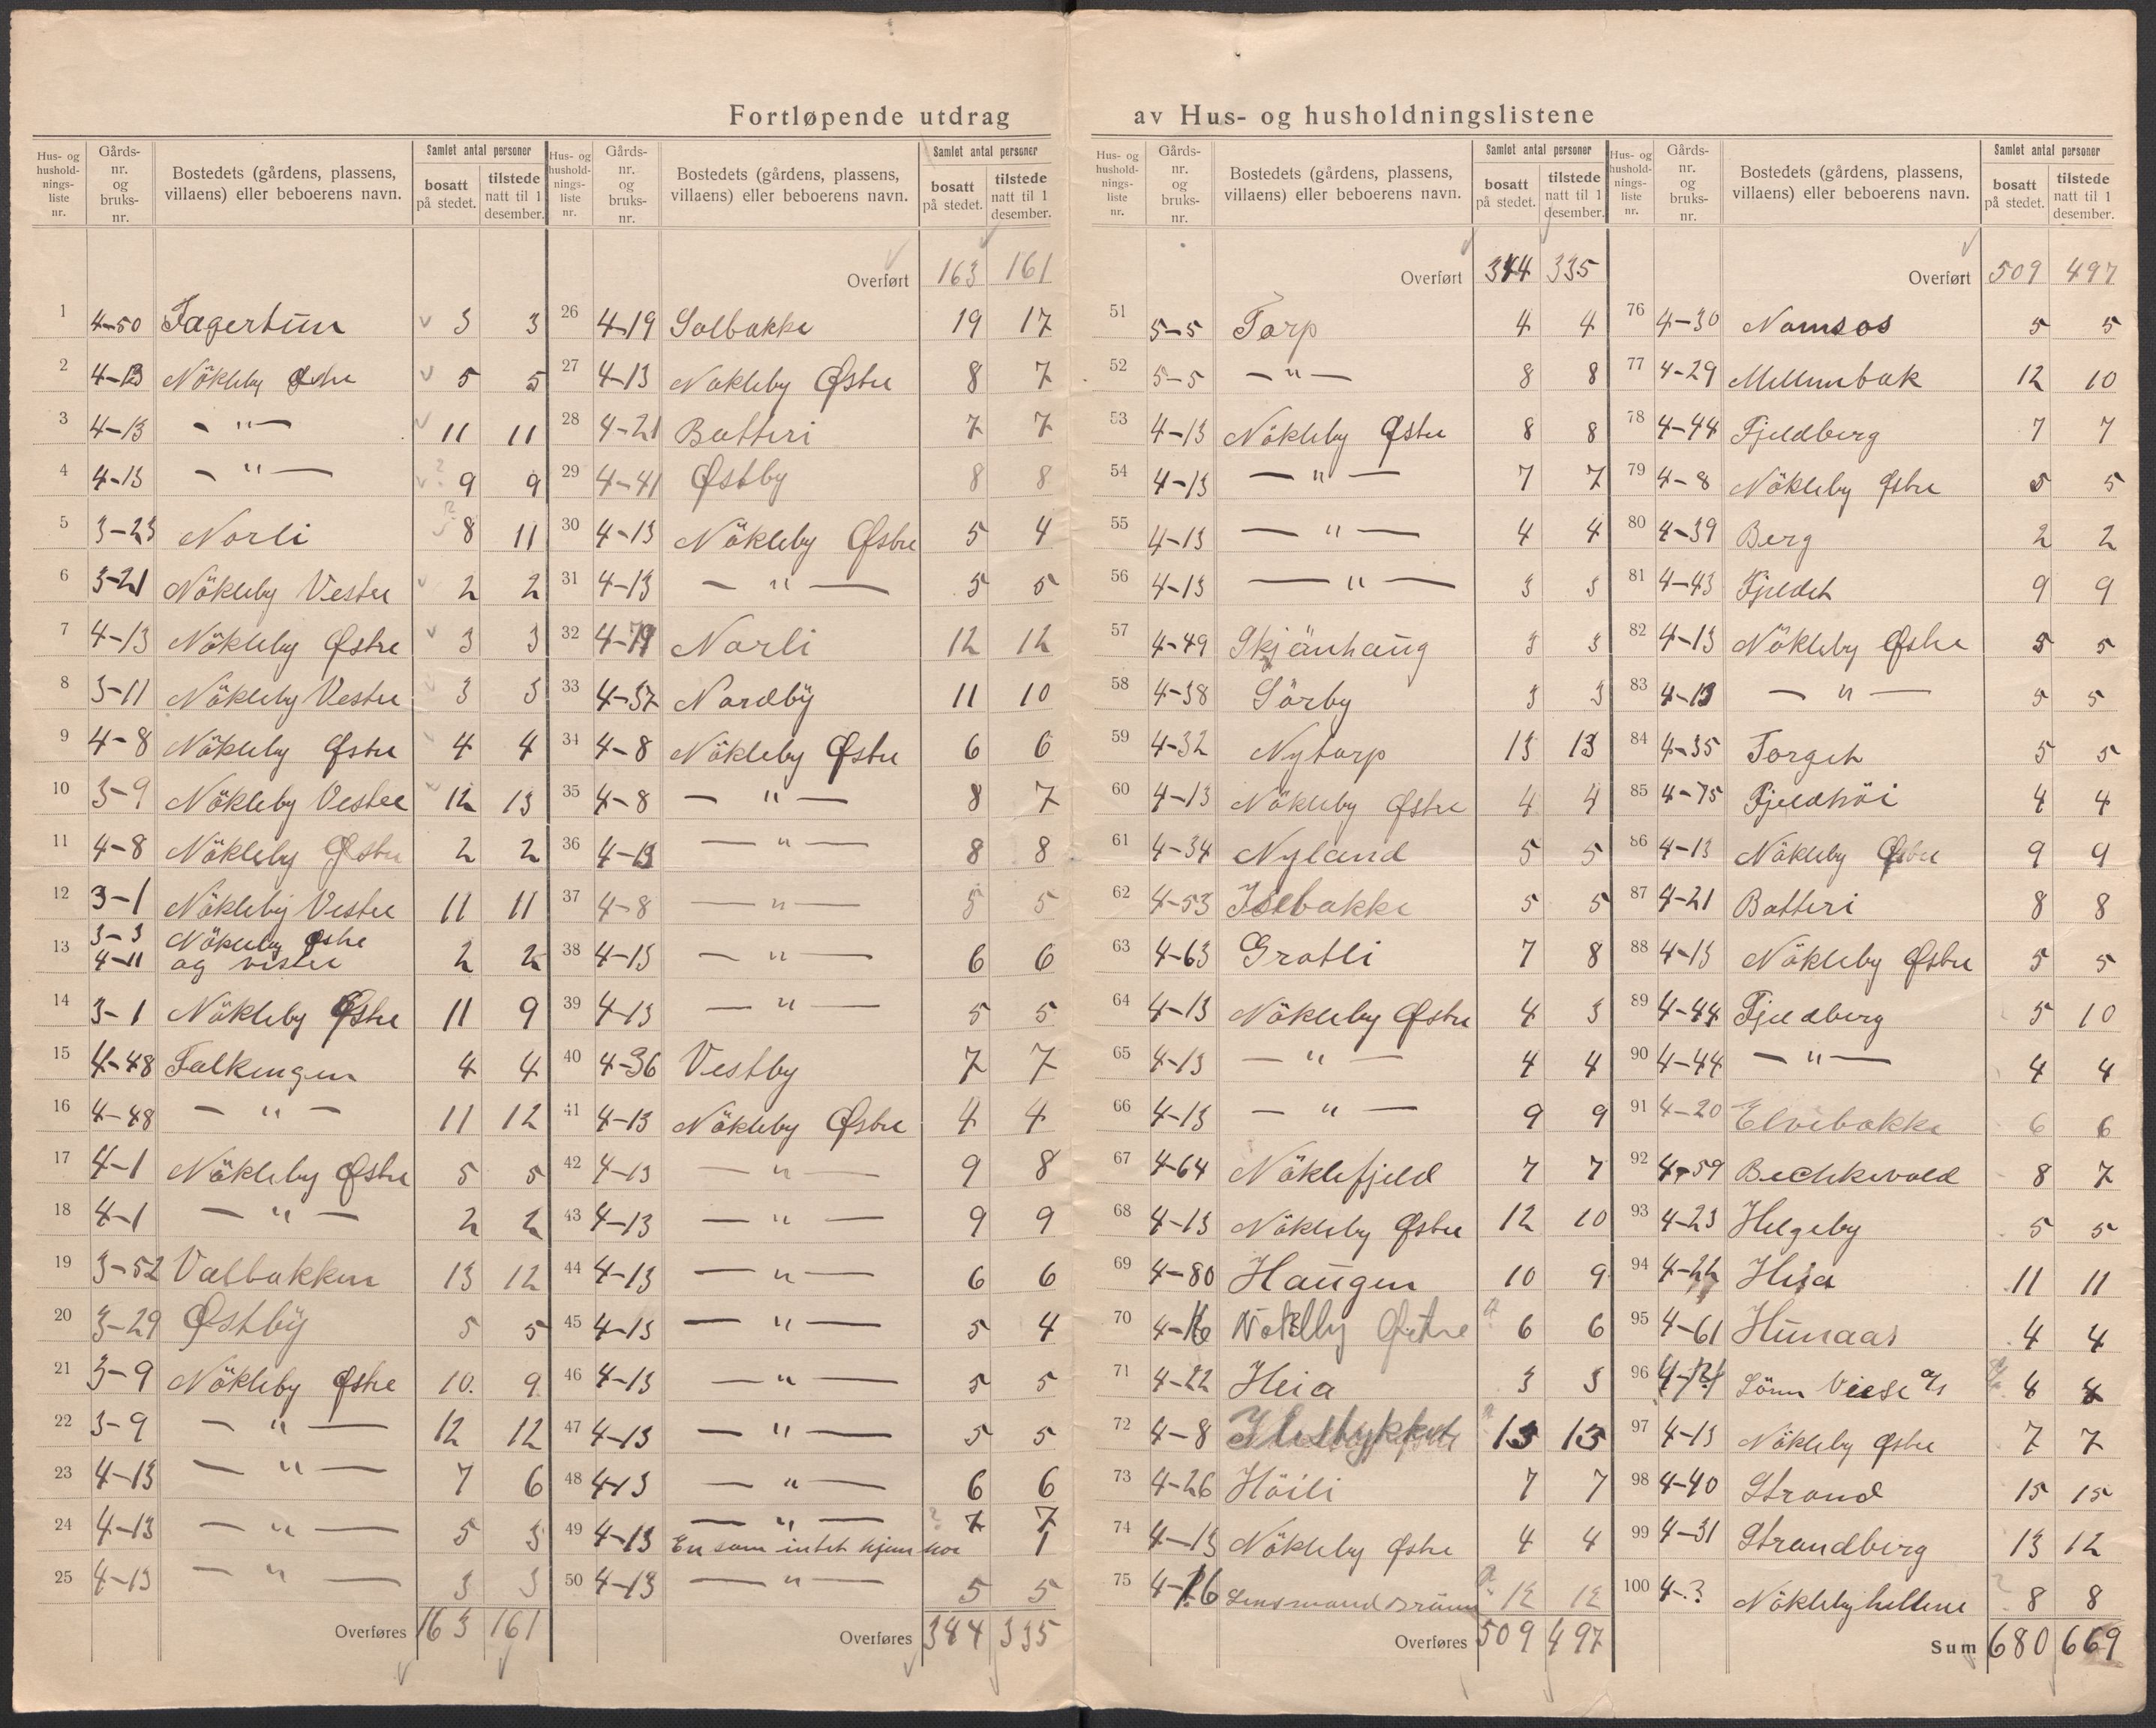 Fortløpende utdrag av Hus- og husholdningslistene
Hus- og hushold-nings-liste nr. | Gårds-nr. og bruks-nr. | Bostedets (gårdens, plassens, villaens) eller beboerens navn. | Samlet antal personer | bosatt på stedet. | tilstede natt til 1 desember.
1 4-50 Fagertun 3 3
2 4-13 Nökleby Østre 5 5
3 4-13 — " — 11 11
4 4-13 — " — 9 9
5 3-23 Norli 8 11
6 3-21 Nökleby Vestre 2 2
7 4-13 Nökleby Østre 3 3
8 3-11 Nökleby Vestre 3 3
9 4-8 Nökleby Østre 4 4
10 3-9 Nökleby Vestre 12 13
11 4-8 Nökleby Østre 2 2
12 3-1 Nökleby Vestre 11 11
13 3-3 Nökleby Østre
4-11 og vestre 2 2
14 3-1 Nökleby Østre 11 9
15 4-48 Falkengen 4 4
16 4-48 — " — 11 12
17 4-1 Nökleby Østre 5 5
18 4-1 — " — 2 2
19 3-52 Valbakken 13 12
20 3-29 Østby 5 5
21 3-9 Nökleby Østre 10. 9
22 3-9 — " — 12 12
23 4-13 — " — 7 6
24 4-13 — " — 5 3
25 4-13 — " — 3 3
Overføres 163 161
Hus- og hushold-nings-liste nr. | Gårds-nr. og bruks-nr. | Bostedets (gårdens, plassens, villaens) eller beboerens navn. | Samlet antal personer | bosatt på stedet. | tilstede natt til 1 desember.
Overført 163 161
26 4-19 Solbakke 19 17
27 4-13 Nokleby Østre 8 7
28 4-21 Batteri 7 7
29 4-41 Østby 8 8
30 4-13 Nökleby Østre 5 4
31 4-13 — " — 5 5
32 4-79 Norli 12 12
33 4-37 Nordby 11 10
34 4-8 Nökleby Østre 6 6
35 4-8 — " — 8 7
36 4-13 — " — 8 8
37 4-8 — " — 5 5
38 4-13 — " — 6 6
39 4-13 — " — 5 5
40 4-36 Vestby 7 7
41 4-13 Nökleby Østre 4 4
42 4-13 — " — 9 8
43 4-13 — " — 9 9
44 4-13 — " — 6 6
45 4-13 — " — 5 4
46 4-13 — " — 5 5
47 4-13 — " — 5 5
48 4-13 — " — 6 6
49 4-13 — " — ? 7 7
En som intet hjem har 1
50 4-13 — " — 5 5
Overføres 344 335
Hus- og hushold-nings-liste nr. | Gårds-nr. og bruks-nr. | Bostedets (gårdens, plassens, villaens) eller beboerens navn. | Samlet antal personer | bosatt på stedet. | tilstede natt til 1 desember.
Overført 344 335
51 5-5 Torp 4 4
52 5-5 — " — 8 8
53 4-13 Nökleby Østre 8 8
54 4-13 — " — 7 7
55 4-13 — " — 4 4
56 4-13 — " — 3 3
57 4-49 Skjönhaug 3 3
58 4-38 Sörby 3 3
59 4-32 Nytorp 13 13
60 4-13 Nökleby Østre 4 4
61 4-34 Nyland 5 5
62 4-53 Isebakke 5 5
63 4-63 Grotli 7 8
64 4-13 Nökleby Østre 4 3
65 4-13 — " — 4 4
66 4-13 — " — 9 9
67 4-64 Nöklefjeld 7 7
68 4-13 Nökleby Østre 12 10
69 4-80 Haugen 10 9
70 4-16 Nökelby Østre 6 6
71 4-22 Heia 3 3
72 4-8 13 13
73 4-26 Höili 7 7
74 4-13 Nökleby Østre 4 4
75 4-16 Lensmand 12 12
Overføres 509 497
Hus- og hushold-nings-liste nr. | Gårds-nr. og bruks-nr. | Bostedets (gårdens, plassens, villaens) eller beboerens navn. | Samlet antal personer | bosatt på stedet. | tilstede natt til 1 desember.
Overført 509 497
76 4-30 Namsos 5 5
77 4-29 Mellembak 12 10
78 4-44 Fjeldberg 7 7
79 4-8 Nökleby Østre 5 5
80 4-39 Berg 2 2
81 4-43 Fjeldet 9 9
82 4-13 Nökleby Østre 5 5
83 4-13 — " — 5 5
84 4-35 Torget 5 5
85 4-75 Fjeldhöi 4 4
86 4-13 Nökleby Østre 9 9
87 4-21 Batteri 8 8
88 4-13 Nökleby Østre 5 5
89 4-44 Fjeldberg 5 10
90 4-44 — " — 4 4
91 4-20 Elvebakke 6 6
92 4-59 Bechkevold 8 7
93 4-23 Helgeby 5 5
94 4-22 Heia 11 11
95 4-61 Hunaas 4 4
96 Sönn
97 4-13 Nökleby Østre 7 7
98 4-40 Strand 15 15
99 4-31 Strandberg 13 12
100 4-? Nöklebyhellene 8 8
Sum 680 669